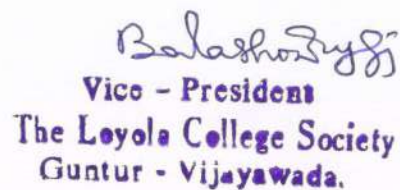 Vice - President
The Loyola College Society
Guntur - Vijayawada.